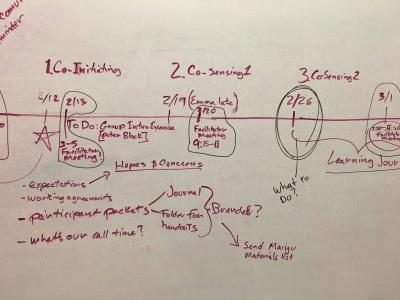 1. Co-Initiating
2. Co-Sensing 1
3. CoSensing 2
2/12
2/13
2/19 (Emma late)
2/20
2/26
3/1
To Do: Group Intro Exercise
[Peter Block]
3-5
Facilitator
Meeting!
Facilitator
Meeting
9:15-11
Learning Jour
Hopes & Concerns
What to
Do?
- expectations
- working agreements
- participant packets
- what's our call time?
Journal
Folder for
handouts
Brandell?
Send
Materials list